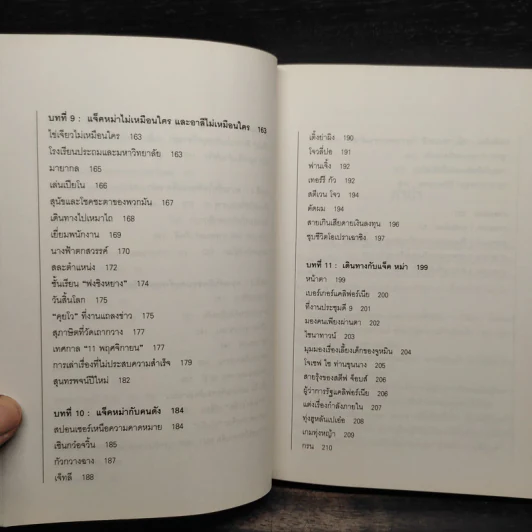 บทที่ 9 : แจ็คหม่าไม่เหมือนใคร และอาลีไม่เหมือนใคร 163
ไช่เจียวไม่เหมือนใคร 163
โรงเรียนประถมและมหาวิทยาลัย 163
มายากล 165
เล่นเปียโน 166
สุนัขและโชคชะตาของพวกมัน 167
เดินทางไปเหมาไถ 168
เยี่ยมพนักงาน 169
นางฟ้าตกสวรรค์ 170
สละตำแหน่ง 172
ชั้นเรียน "ฟงชิงหยาง" 174
วันสิ้นโลก 175
"คุยโว" ที่งานแถลงข่าว 175
สุภาษิตที่วัดเถากวาง 177
เทศกาล "11 พฤศจิกายน" 177
การเล่าเรื่องที่ไม่ประสบความสำเร็จ 179
สุนทรพจน์ปีใหม่ 182
บทที่ 10 : แจ็คหม่ากับคนดัง 184
สปอนเซอร์เหนือความคาดหมาย 184
เชินกว๋อจวิ้น 185
กัวกวางฉาง 187
เจ็ทลี 188
เติ้งย่าผิง 190
โจวลี่ปอ 191
ฟานเจิ้ง 192
เทอร์รี่ กัว 192
สตีเวน โจว 194
ตัดผม 194
สายเกินเสียดายเงินลงทุน 196
ชุบชีวิตโอเปราเฉาซิง 197
บทที่ 11 : เดินทางกับแจ็ค หม่า 199
หน้าตา 199
เบอร์เกอร์แคลิฟอร์เนีย 200
ที่งานประชุมดี 9 201
มองคนเพียงผ่านตา 202
ไชนาทาวน์ 203
มุมมองเรื่องเลี้ยงเด็กของซูหมิน 204
โจเซฟ ไช ท่านขุนนาง 205
สายรุ้งของสตีฟ จ็อบส์ 206
ผู้ว่าการรัฐแคลิฟอร์เนีย 206
แต่งเรื่องกำลังภายใน 207
ทุ่งฮูหลันเป้ยเอ๋อ 208
เกมทุ่งหญ้า 209
กรน 210